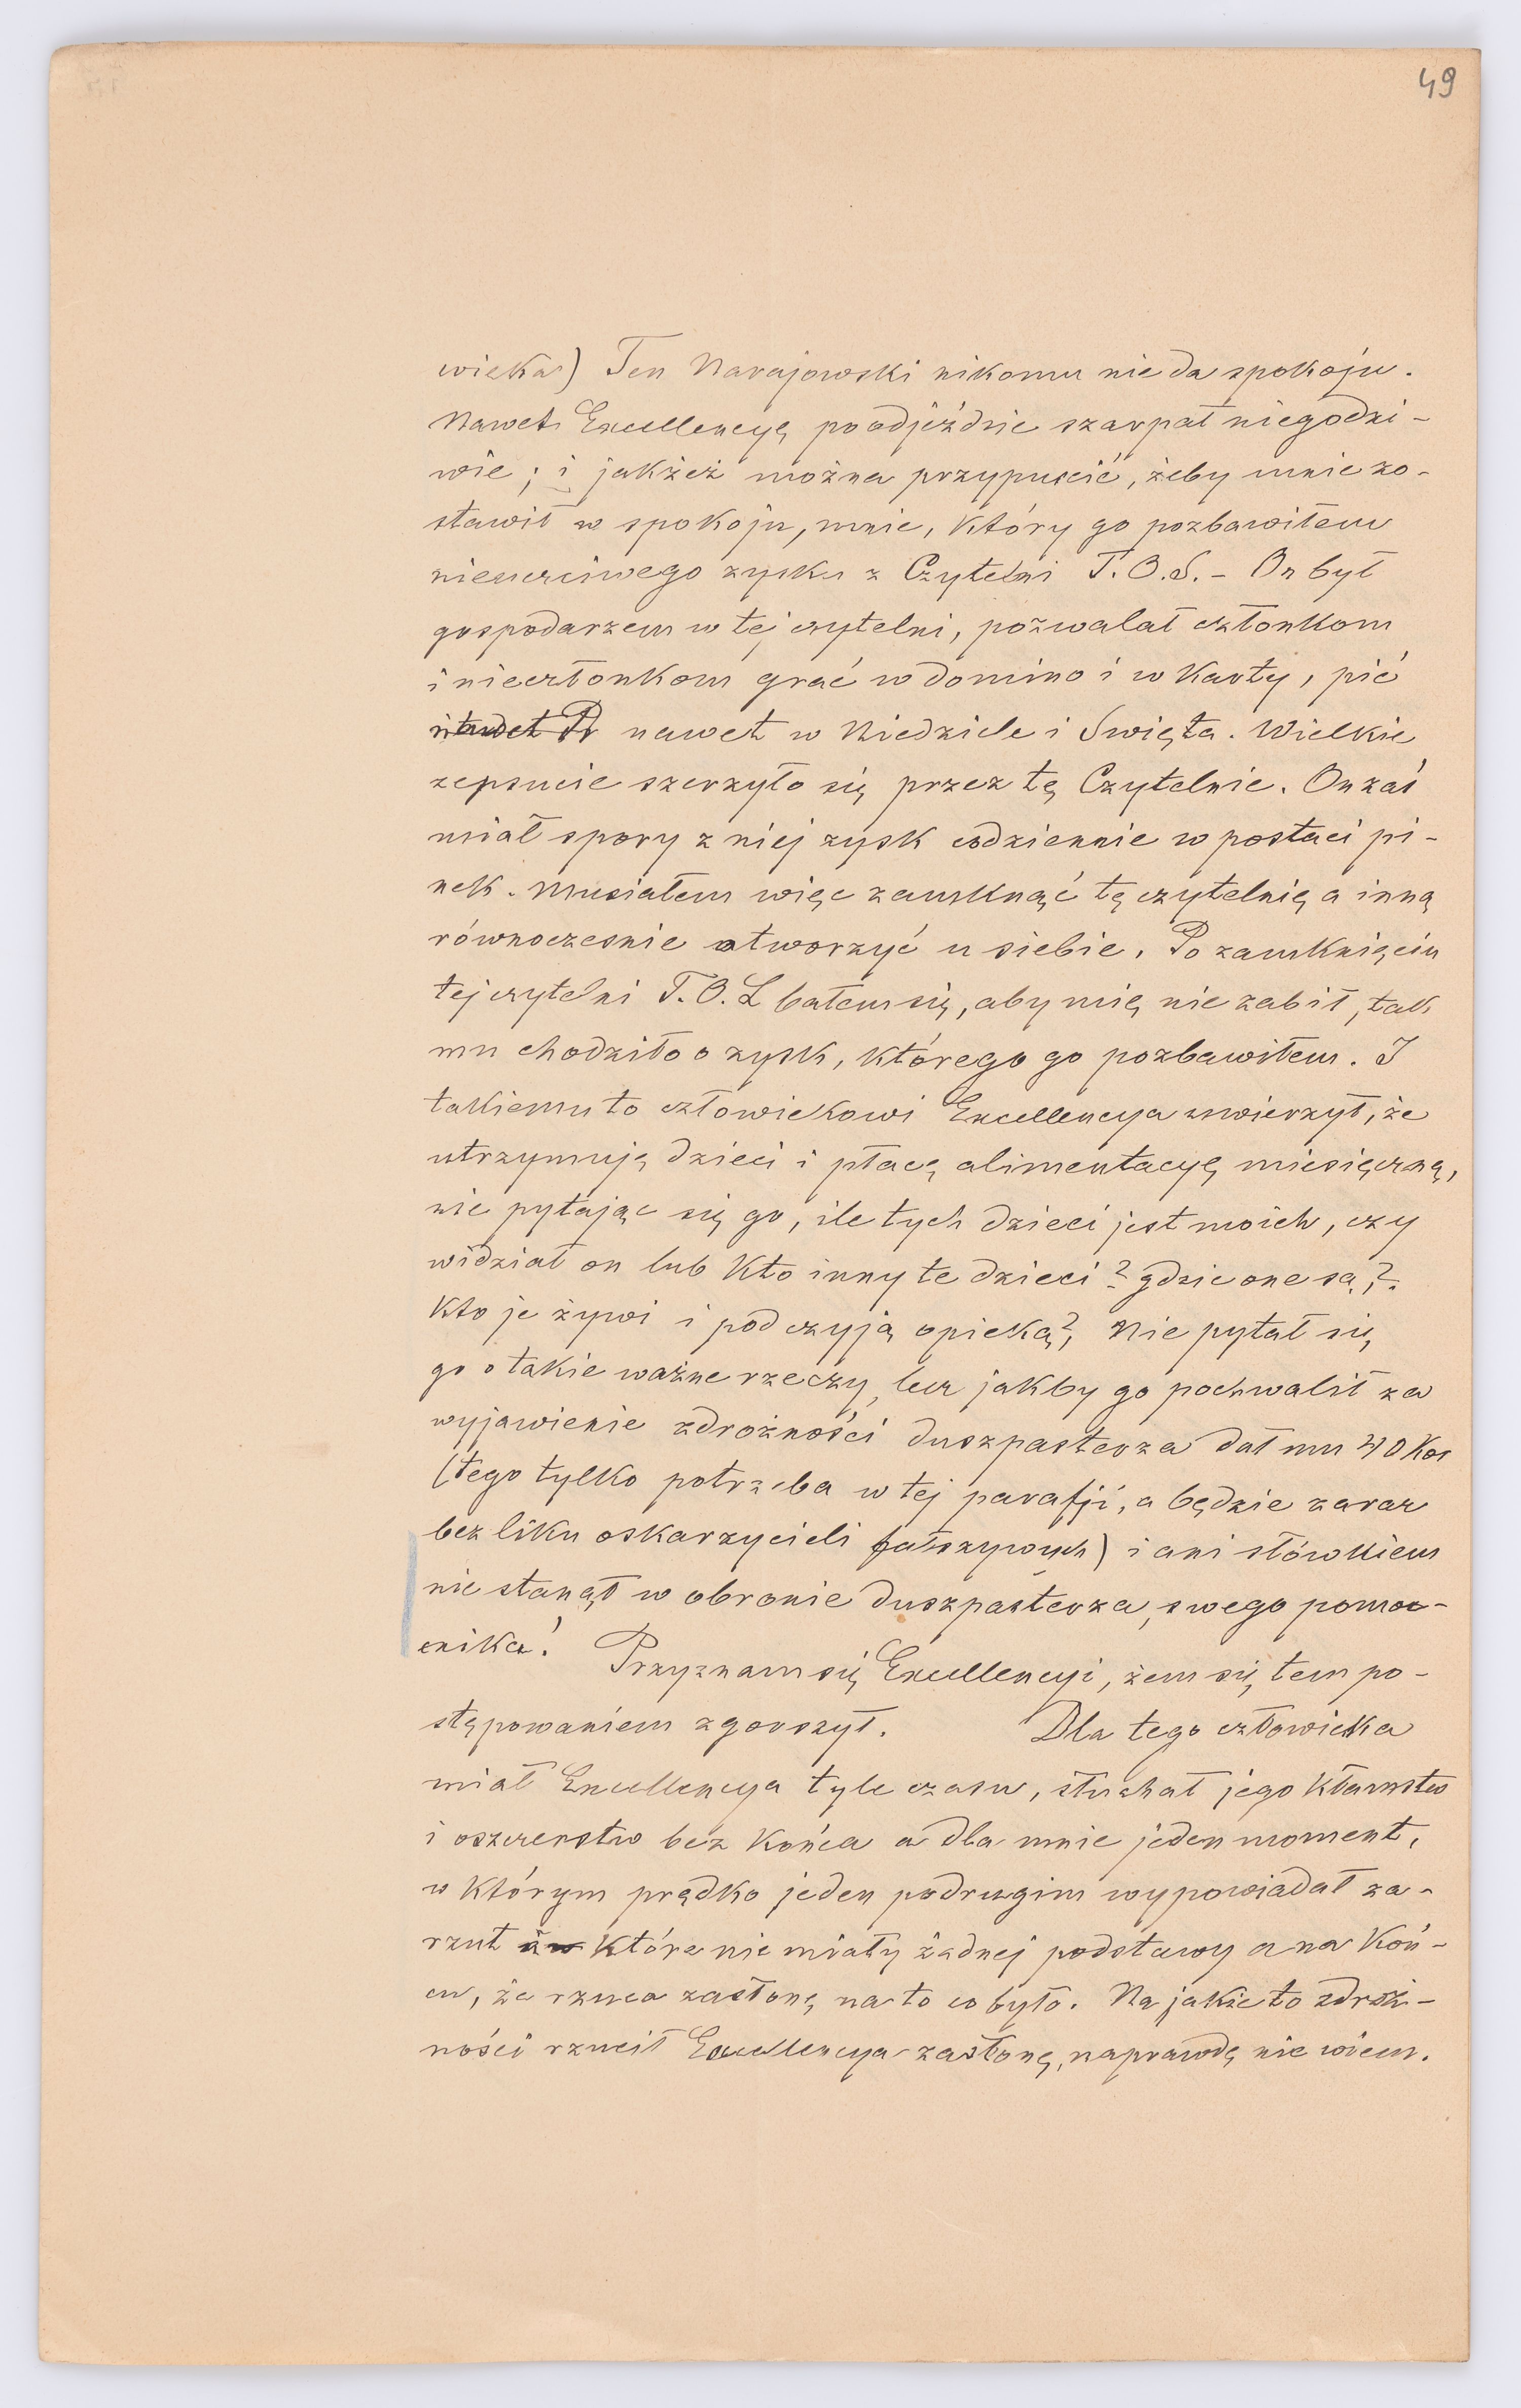 49
wieka) Ten Narajowski nikomu nie da spokoju.
Nawet Excellencyę po odjeździe szarpał niegodzi-
wie; i jakżeż można przypuścić, żeby mnie zo-
stawił w spokoju, mnie, który go pozbawiłem
nieuczciwego zysku z Czytelni T.O.S. – On był
gospodarzem w tej czytelni, pozwalał członkom
i nieczłonkom grać w domino i w karty, pić
nawet w Niedziele i Swięta. Wielkie
zepsucie szerzyło się przez tę Czytelnie. On zaś
miał spory z niej zysk codziennie w postaci pi-
nek. Musiałem więc zamknąć tę czytelnię a inną
równoczesnie otworzyć u siebie. Po zamknięciu
tej czytelni T.O.L bałem się, aby mię nie zabił, tak
mu chodziło o zysk, którego go pozbawiłem. I
takiemu to człowiekowi Excellencya uwierzył, że
utrzymuję dzieci i płacę alimentacyę miesięczną,
nie pytając się go, ile tych dzieci jest moich, czy
widział on lub kto inny te dzieci? gdzie one są?
Kto je żywi i pod czyją opieką? Nie pytał się
go o takie ważne rzeczy, lecz jakby go pochwalił za
wyjawienie zdrożności duszpasterza dał mu 40 Kor
(tego tylko potrzeba w tej parafji, a będzie zaraz
bez liku oskarzycieli fałszywych) i ani słówkiem
nie stanął w obronie duszpasterza, swego pomoc-
nika! Przyznam się Excellencyi, żem się tem po-
stępowaniem zgorszył. Dla tego człowieka
miał Excellencya tyle czasu, słuchał jego kłamstw
i oszczerstw bez końca a dla mnie jeden moment,
w którym prędko jeden po drugim wypowiadał za-
rzut które nie miały żadnej podstawy a na koń-
cu, że rzuca zasłonę na to co było. Na jakie to zdroż-
ności rzucił Excellencya zasłonę, naprawdę nie wiem.